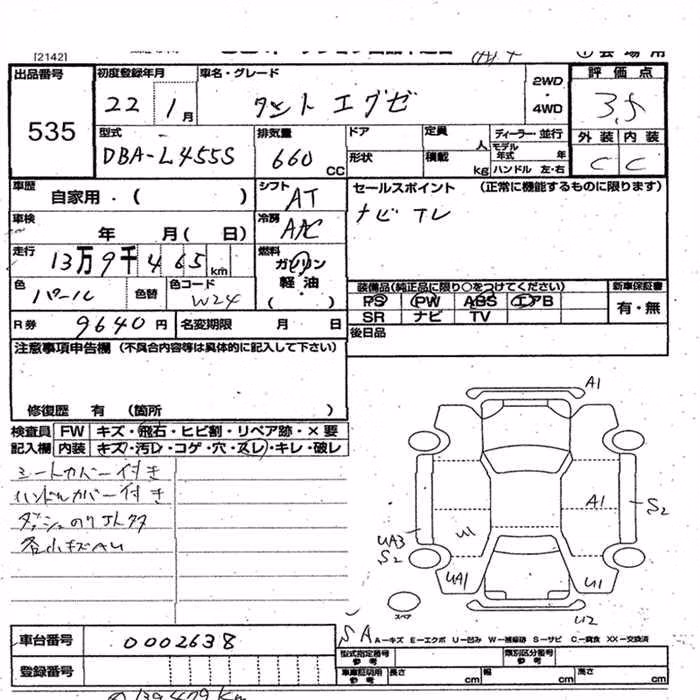 [2142]
出品番号 初度登録年月 車名・グレード 評価点
535 22 1月 タント エグゼ 2WD ・ 4WD 3.5
型式 排気量 ドア 定員 人 ディーラー・並行 外装 内装
DBA-L455S 660 CC 形状 積載 kg モデル年式 年 ハンドル 左・右 C C
車歴 自家用・( ) シフト AT セールスポイント (正常に機能するものに限ります)
車検 年 月( 日) 冷房 AAC ナビ TV
走行 13万9千465km 燃料 ガソリン 軽油 ( )
色 パール 色替 色コード W24
装備品(純正品に限り○をつけてください) 新車保証書
PS PW ABS エアB 有・無
SR ナビ TV
R券 9640円 名変期限 月 日 後日品
注意事項申告欄 (不具合内容等は具体的に記入して下さい)
修復歴 有 (箇所 )
検査員 FW キズ・飛石・ヒビ割・リペア跡・×要
記入欄 内装 キズ・汚レ・コゲ・穴・スレ・キレ・破レ
シートカバー付き
ハンドルカバー付き
各小キズAU
A1
A1
S2
UA3
S2
U1
UA1
U1
U2
スペア
SA
A―キズ E―エクボ U―凹み W―補修跡 S―サビ C―腐食 XX―交換済
車台番号 0002638 型式指定番号 参考 類別区分番号 参考
登録番号 車庫証明用 参考 長さ cm 幅 cm 高さ cm